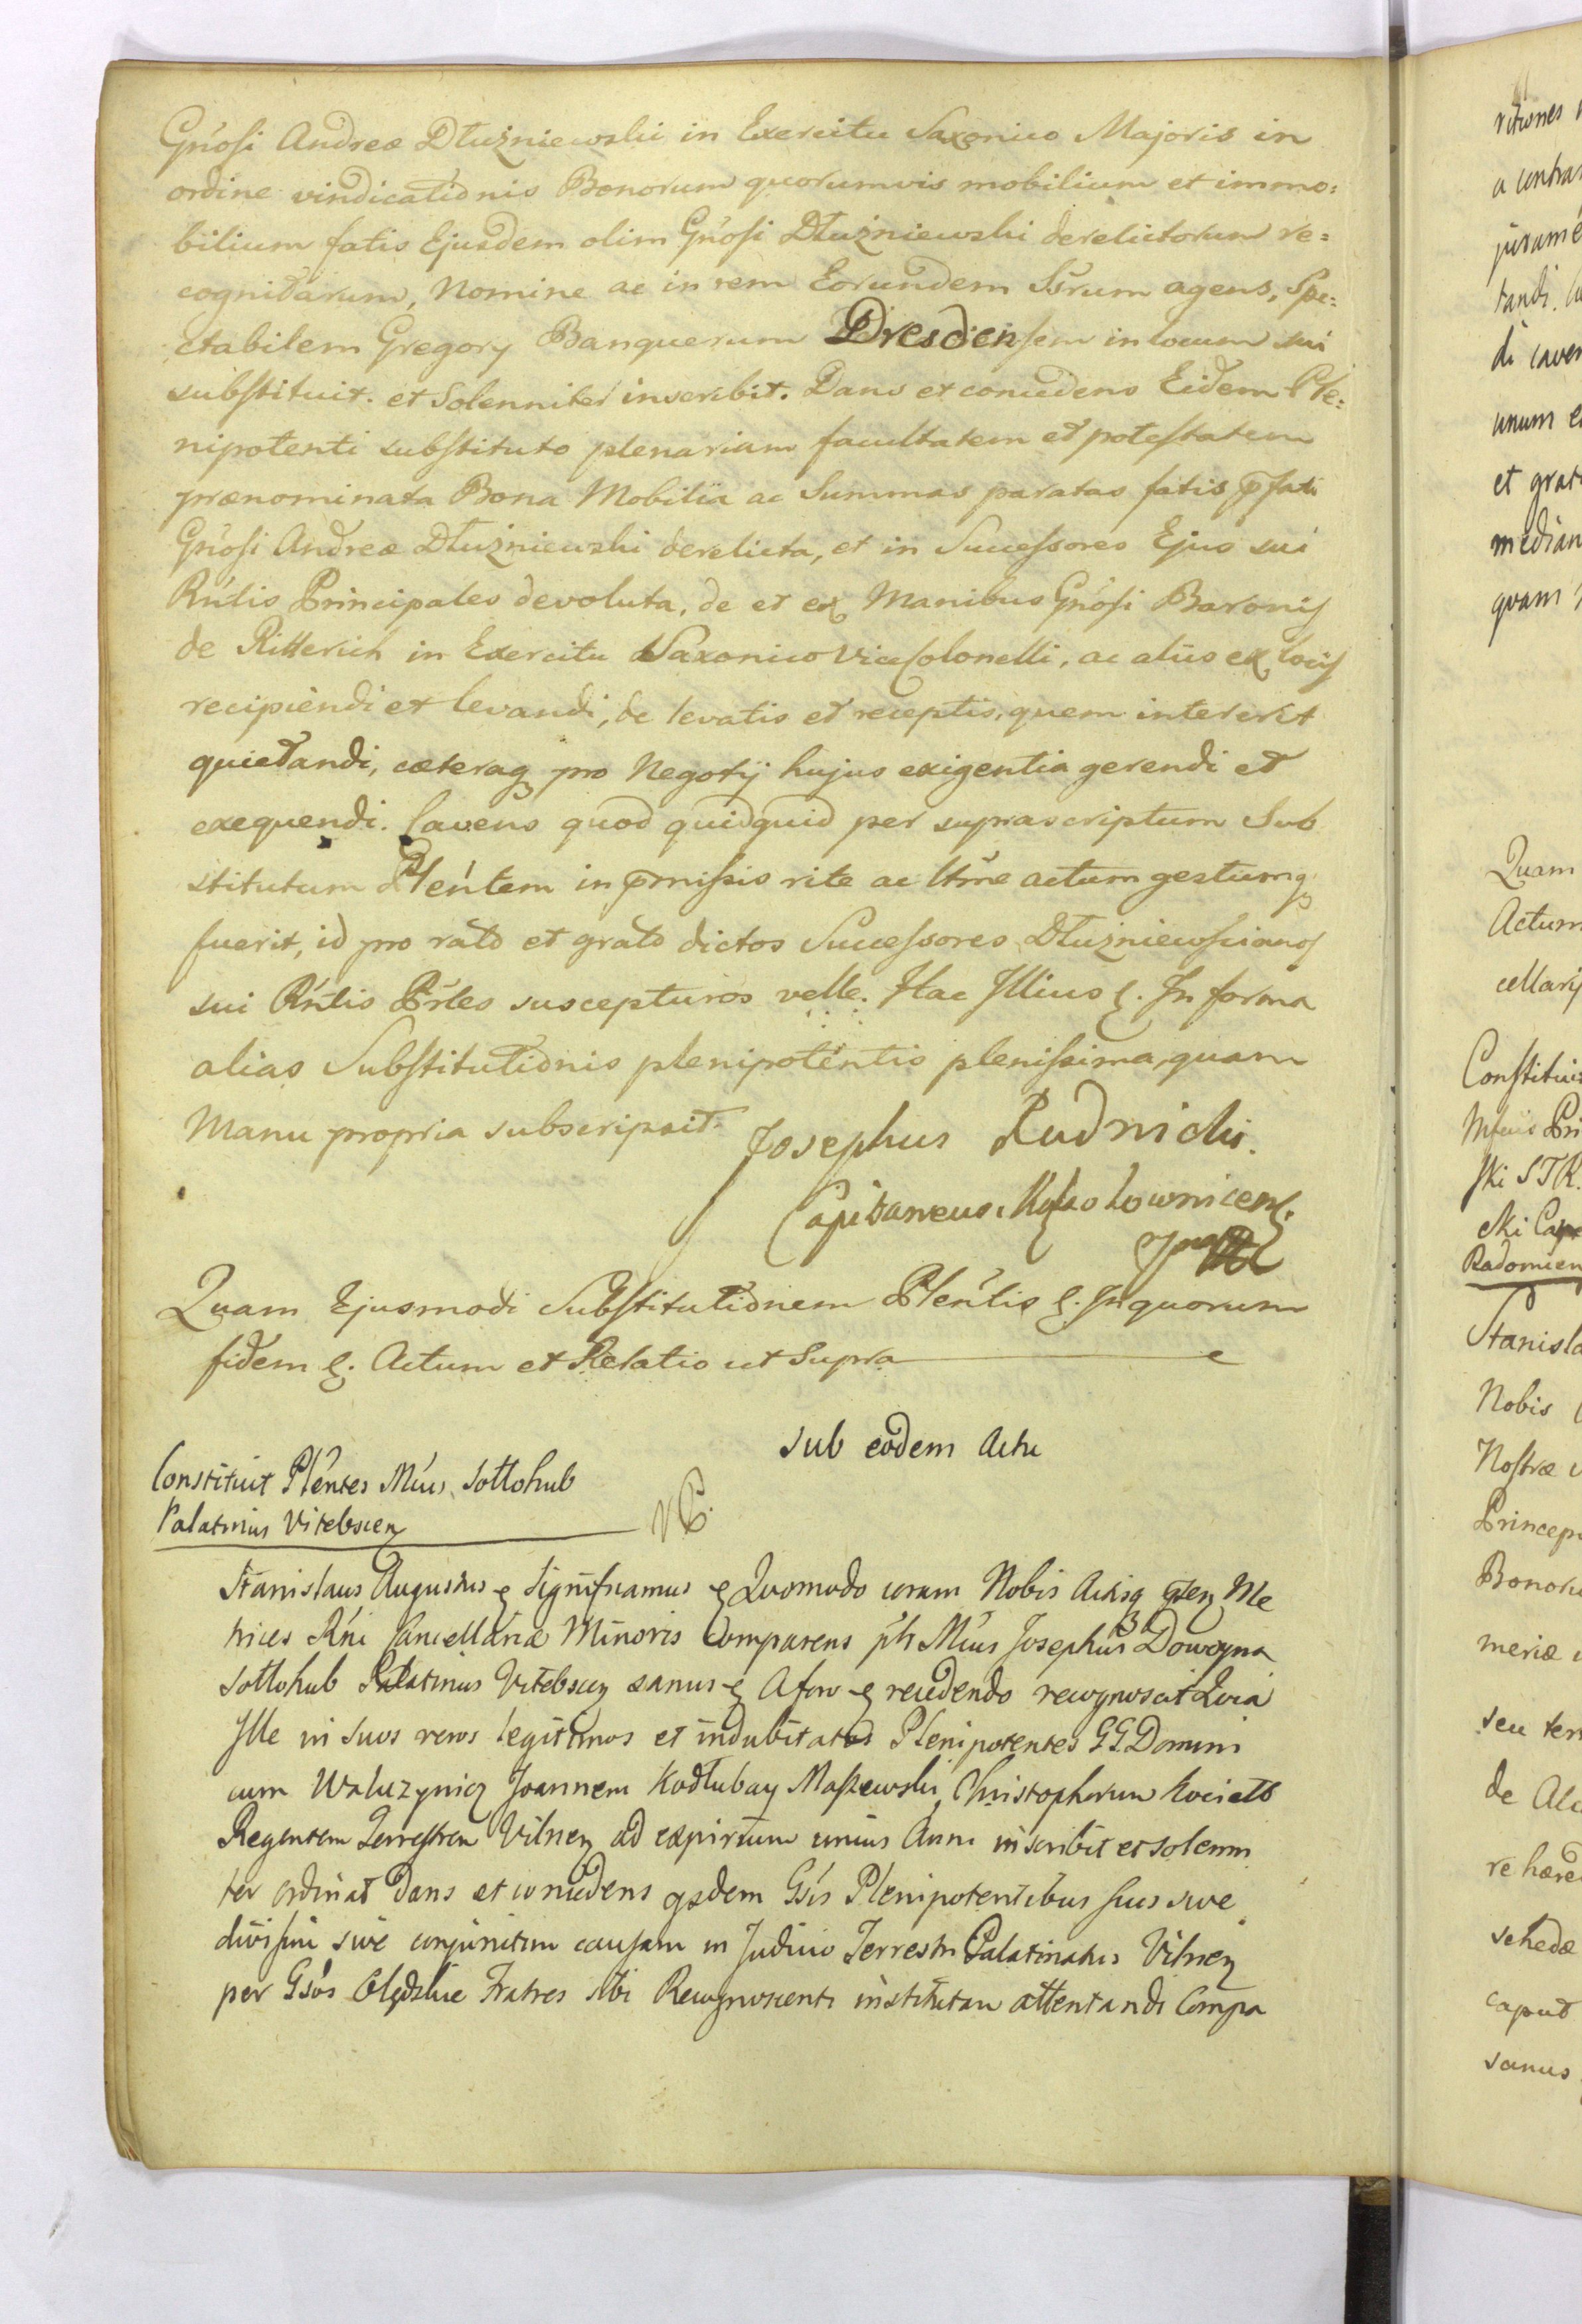 Gnosi Andreæ Dłużniewski in Exercitu Saxonico Majoris in
ordine vindicationis Bonorum quorumvis mobilium et immo=
bilium fatis Ejusdem olim Gnosi Dłużniewski derelictorum re=
cognitarum, Nomine ac in rem Eorundem Ssrum agens, Spe=
ctabilem Gregory Banquerum Dresdensem in locum sui
substituit. et Solenniter inscribit. Dans et concedens Eidem Ple=
nipotenti substituto plenariam facultatem et potestatem
prænominata Bona Mobilia ac Summas paratas fatis pfati
Gnosi Andreæ Dłużniewski derelicta, et in Successores Ejus sui
Rntis Principales devoluta, de et ex Manibus Gnosi Baronis
de Ritterich in Exercitu Saxonico ViceColonelli, ac aliis ex locis
recipiendi et levandi, de levatis et receptis, quem intererit
quietandi, cæteraq pro Negotij hujus exigentia gerendi et
exequendi. Cavens quod quidquid per suprascriptum Sub
stitutum Plentem in pmissis rite ac ltme actum gestumq
fuerit, id pro rato et grato dictos Successores Dłużniewscianos
sui Rntis Prles suscepturos velle. Hac Illius &. In forma
alias Substitutionis plenipotentis plenissima, quam
Manu propria subscripsit.
Josephus Rudnicki.
Capitaneus
Quam Ejusmodi Substitutionem Plentis &. In quorum
fidem &. Actum et Relatio ut Supra
Sub eodem Actu
Constituit Plentes Mcus Sottohub
Palatinus Vitebscen
Stanislaus Augustus & Significamus & Quomodo coram Nobis Actisq Me
trices Rni Cancellariæ Minoris Comparens Mcus Josephus Dowoyna
Sottohub Palatinus Vitebscen sanus & A foro & recedendo recognoscit Quia
Ille in Suos veros legitimos et indubitatos Plenipotentes GG. Domini
cum Waluzynicz Joannem Kodłubay Maszewski, Christophorum Kociełł
Regentem Terrestrem Vilnen ad expirium unius Anni inscribit et solenni
ter ordinat Dans et concedens Gsis Plenipotentibus suis sive
divisim sive conjunctim causam in Judicio Terrestri Palatinatus Vilnen
per Gsos Olędzkie Fratres sibi Recognoscenti institutam attentandi Compa